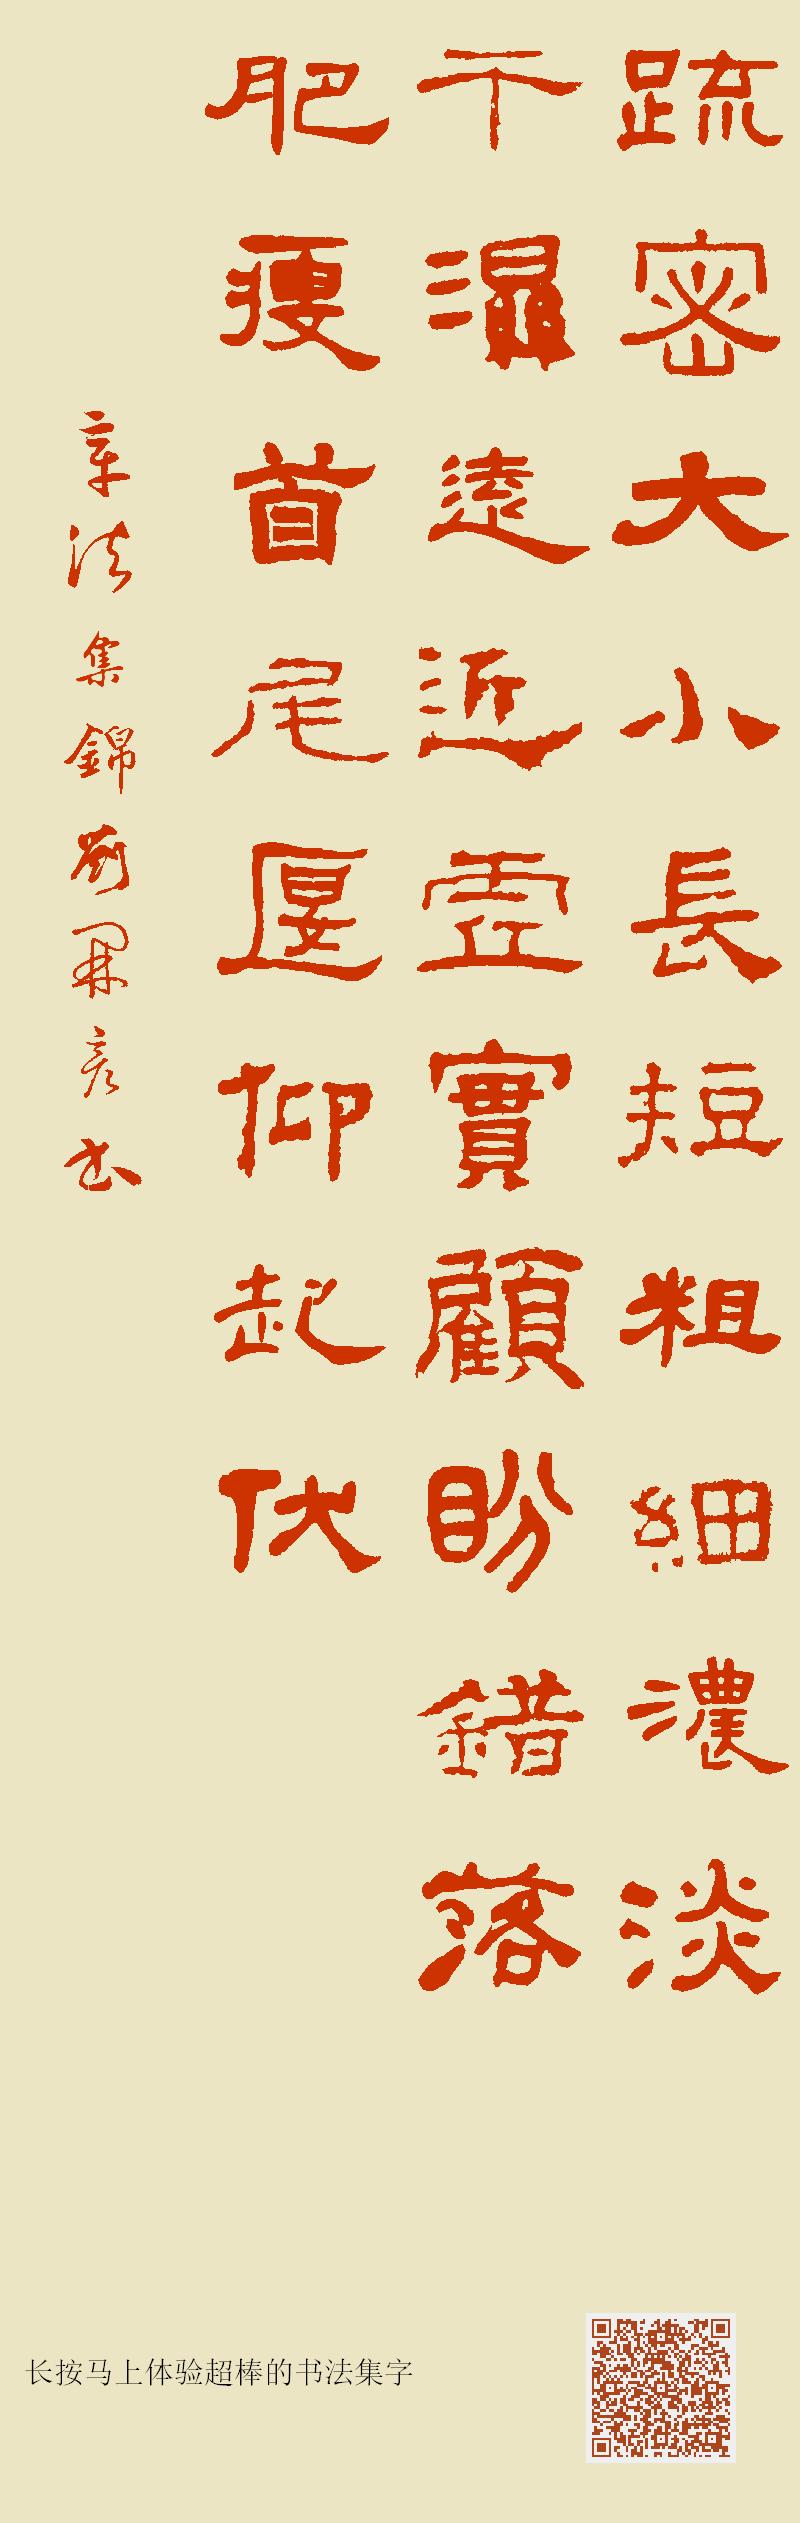 疏密大小長短粗細濃淡
干濕遠近虛實顧盼錯落
肥瘦首尾偃仰起伏
章法集錦劉開彥書
长按马上体验超棒的书法集字